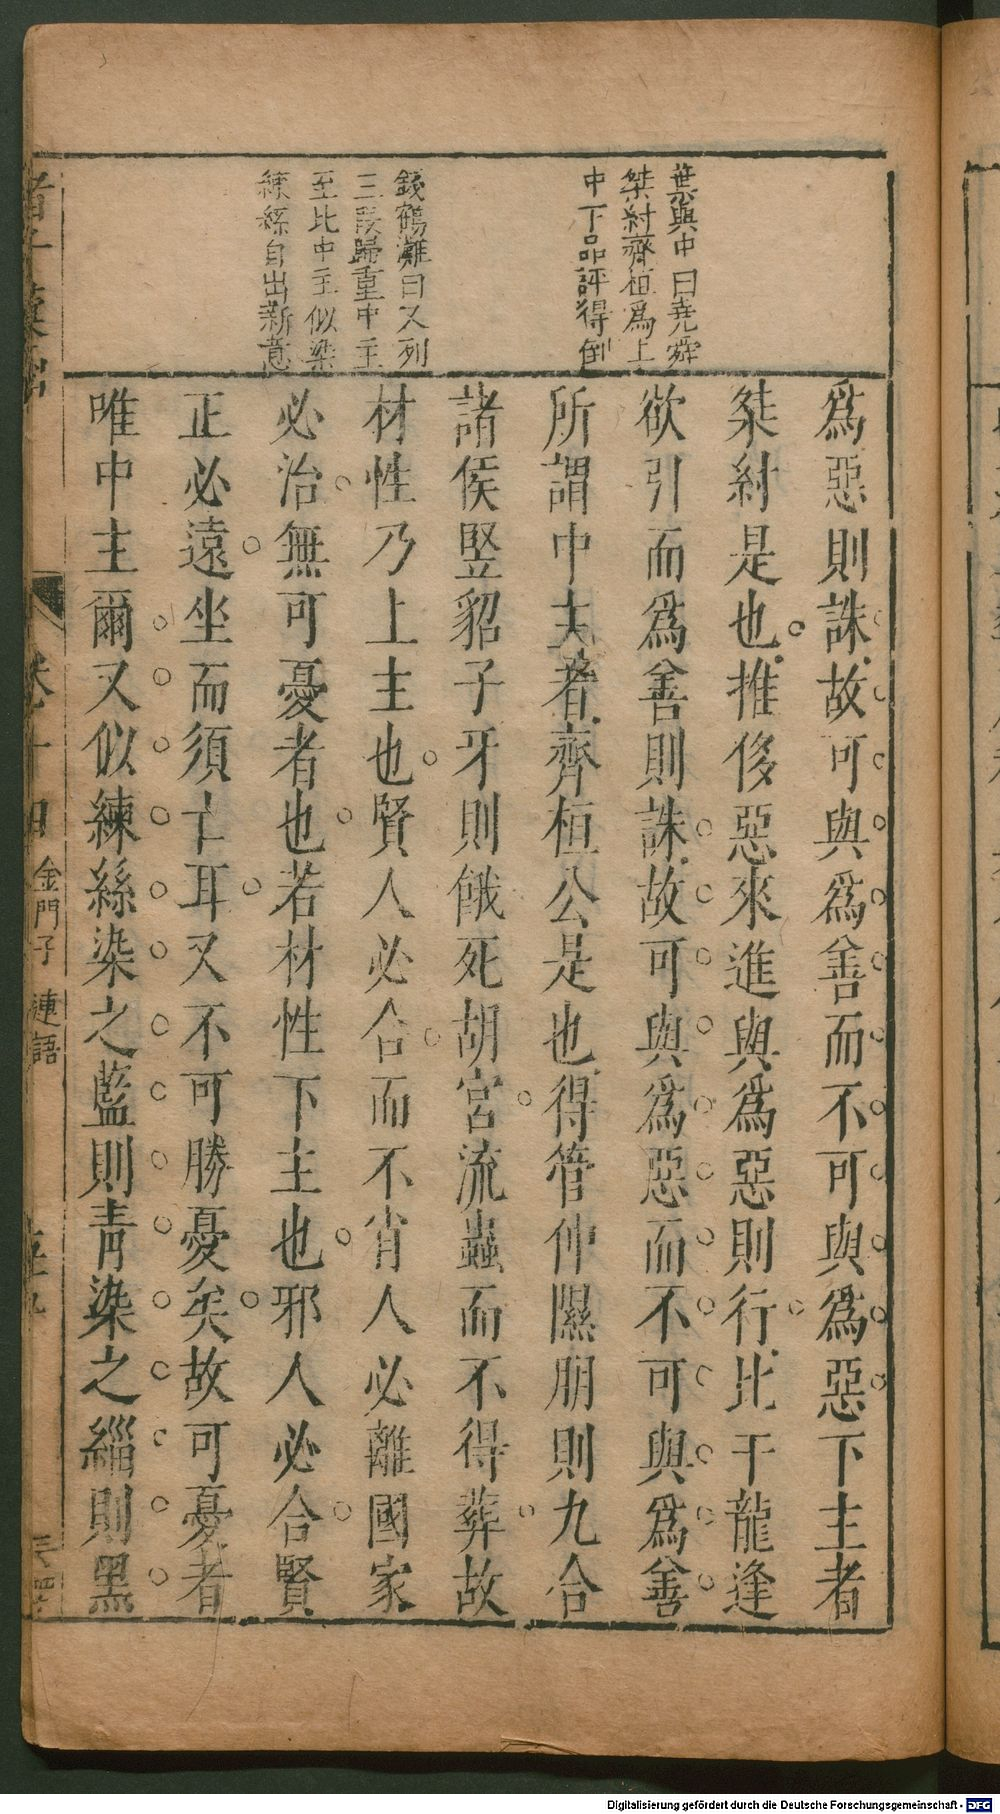 葉與中曰堯舜
桀紂齊桓爲上
中下品評得倒
錢鶴灘曰又列
三段歸重中主
至比中主似染
練絲自出新意
爲惡則誅故可與爲善而不可與爲惡下主者
桀紂是也推侈惡來進與爲惡則行比干龍逢
欲引而爲善則誅故可與爲惡而不可與爲善
所謂中主者齊桓公是也得管仲隰朋則九合
諸侯竪貂子牙則餓死胡宮流蟲而不得葬故
材性乃上主也賢人必合而不肖人必離國家
必治無可憂者也若材性下主也邪人必合賢
正必遠坐而須亡耳又不可勝憂矣故可憂者
唯中主爾又似練絲染之藍則青染之緇則黑
卷十四 金門子 連語
Digitalisierung gefördert durch die Deutsche Forschungsgemeinschaft - DFG